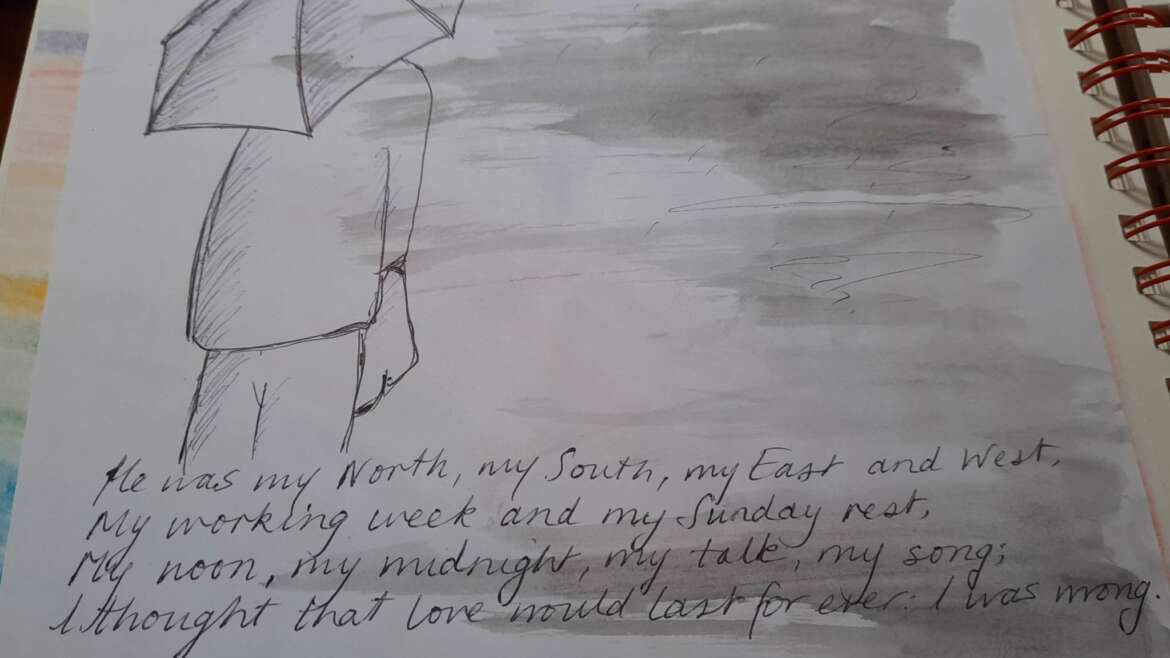 He was my North, my South, my East and West,
My working week and my Sunday rest,
My noon, my midnight, my talk, my song;
I thought that love would last for ever: I was wrong.